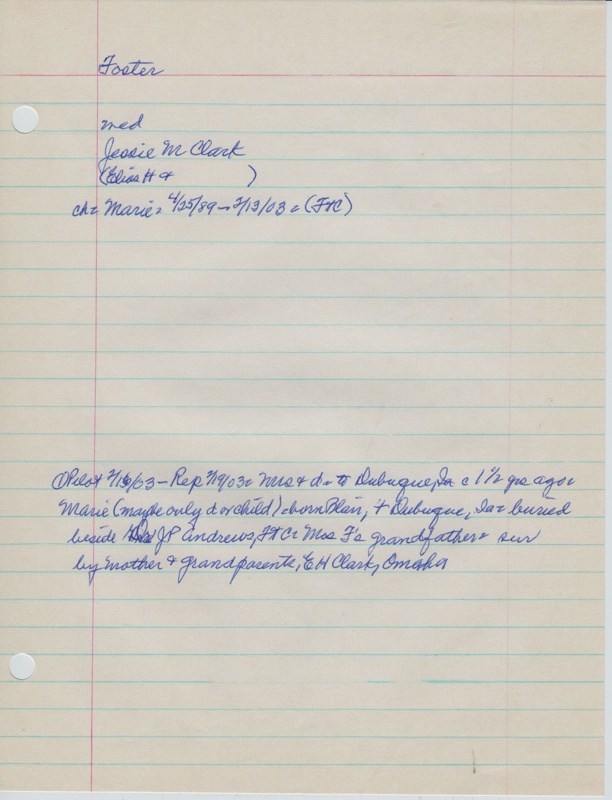 Foster
med
Jessie M Clark
(Elias H &          )
ch= Marie = 4/25/89 - 2/13/03 = (F+C)
Pilot 2/19/03 - Rep 2/19/03 = Mrs & d = to Dubuque, Ia c 1 1/2 yrs ago =
Marie (maybe only d or child) = born Blair, + Dubuque, Ia = buried
beside J P Andrews, F+C = Mrs F's grandfather = sur
by mother & grandparents, E H Clark, Omaha